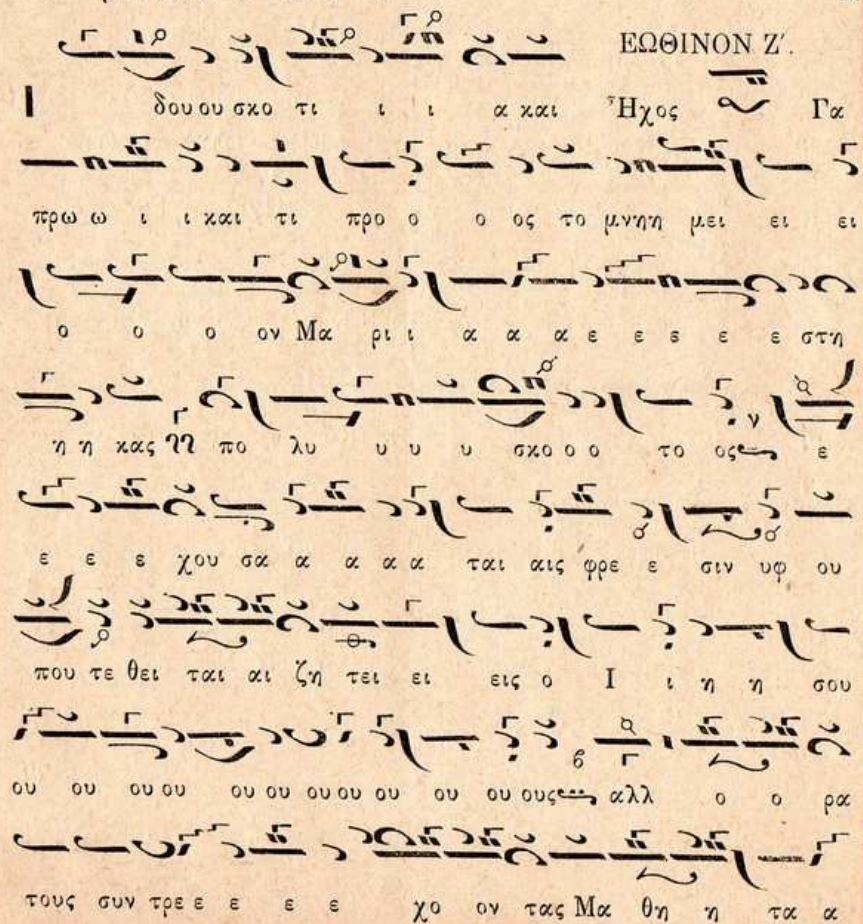 ΕΩΘΙΝΟΝ Ζ΄.
Ἦχος Γα
Ι δου ου σκο τι ι ι α και
πρω ω ι ι και τι προ ο ο ος το μνηη μει ει ει
ο ο ο ον Μα ρι ι α α α ε ε ε ε ε στη
η η κας πο λυ υ υ υ σκο ο ο το ος ε
ε ε ε χου σα α α α α ται αις φρε ε σιν υφ ου
που τε θει ται αι ζη τει ει εις ο Ι ι η η σου
ου ου ου ου ου ου ου ου ου ου ου ους αλλ ο ο ρα
τους συν τρε ε ε ε ε χο ον τας Μα θη η τα α